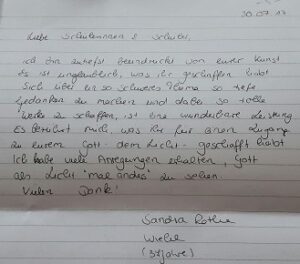 30.07.17
Liebe Schülerinnen & Schüler,
ich bin zutiefst beeindruckt von eurer Kunst
Es ist unglaublich, was ihr geschaffen habt
Sich über ein so schweres Thema so tiefe
Gedanken zu machen und dabei so tolle
Werke zu schaffen, ist eine wunderbare Leistung
Es berührt mich, was ihr für einen Zugang
zu eurem Gott - dem Licht - geschafft habt
Ich habe viele Anregungen erhalten, Gott
als Licht "mal anders" zu sehen.
Vielen Dank!
Sandra